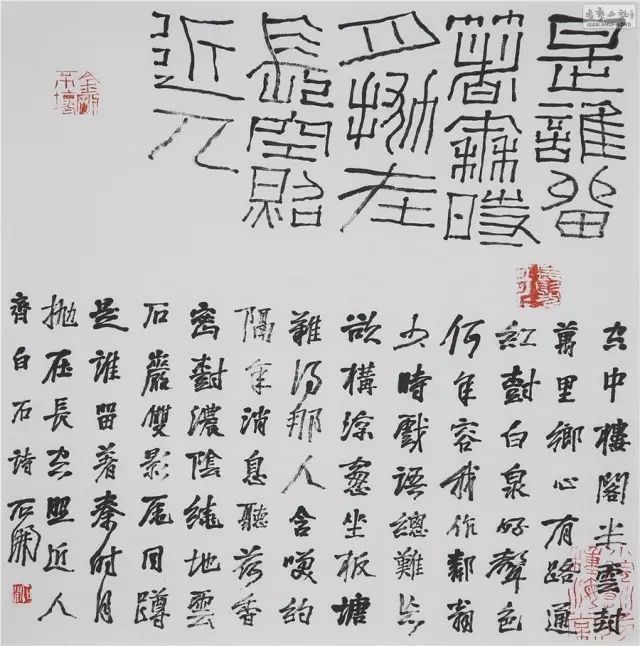 是誰留
著秦時
月拋在
長空照
近人
空中樓閣半雲封
萬里鄉心有路通
紅樹白泉好聲色
何年容我作鄰翁
少時戲語總難忘
欲構涼窗坐板塘
難得那人含笑約
隔年消息聽荷香
密樹濃陰繞地雲
石巖雙影尾同蹲
是誰留著秦時月
拋在長空照近人
齊白石詩 石開